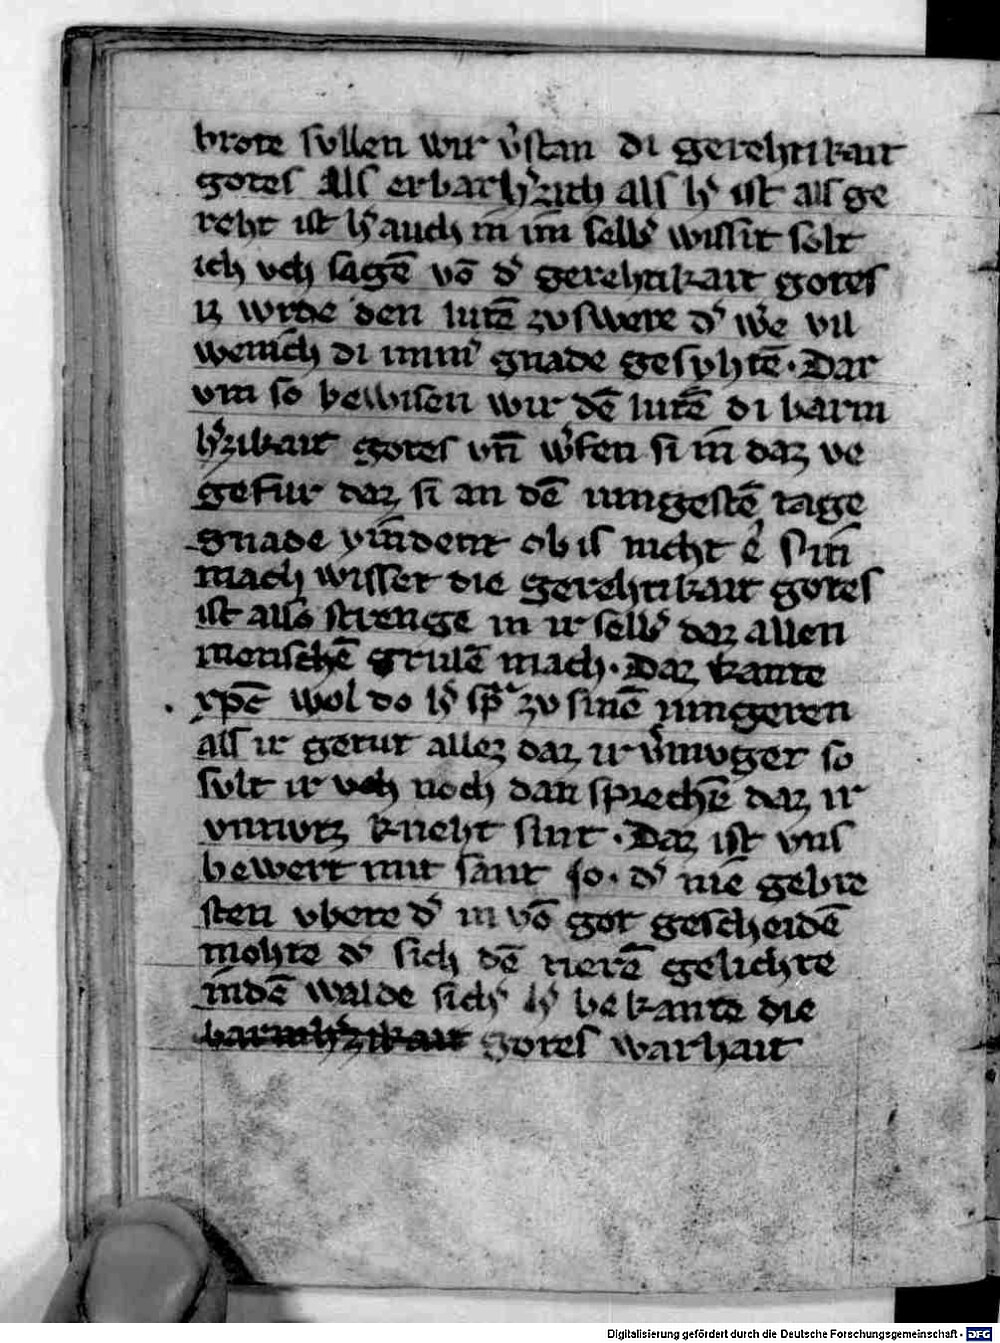 brote sullen wir v̾stan di gerehtikait
gotes Als erbarh̾zich als h̾ ist als ge
reht ist h̾ auch in im selb̾ wissit solt
ich vch sagē vō d̾ gerehtikait gotes
iz wrde den lutē zv swere d̾ w̾e vil
wenich di imm̾ gnade gesvhtē · Dar
vm so bewisen wir dē lutē di barm
h̾zikait gotes vn̄ w̾fen si in daz ve
gefiur daz si an dē iungestē tage
gnade vindent ob is nicht e̾ sin
mach wisset die gerehtikait gotes
ist also strenge in ir selb̾ daz allen
menschē grulē mach · Daz kante
xpc̄ wol do h̾ sp̾ᵃ zv sinē iungeren
als ir getut allez daz ir v̾mvget so
svlt ir vch noch dan sprechē daz ir
vnnvtz kneht sint · Daz ist vns
bewert mit sant io · d̾ nie gebre
sten vbere d̾ in vō got gescheidē
mohte d̾ sich dē tierē gelichte
indē walde sich̾ h̾ bekante die
barmh̾zikait gotes warhait
Digitalisierung gefördert durch die Deutsche Forschungsgemeinschaft - DFG